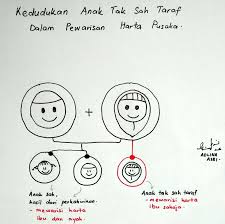 Kedudukan Anak Tak Sah Taraf
Dalam Pewarisan Harta Pusaka.
+
Anak sah,
hasil dari perkahwinan.
- mewarisi harta
ibu dan ayah.
Anak tak sah taraf
- mewarisi harta
ibu sahaja.